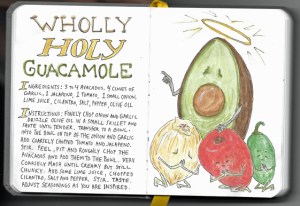 WHOLLY
HOLY
GUACAMOLE
INGREDIENTS: 3 TO 4 AVOCADOS, 4 CLOVES OF
GARLIC, 1 JALAPENO, 1 TOMATO, 1 SMALL ONION,
LIME JUICE, CILANTRO, SALT, PEPPER, OLIVE OIL
INSTRUCTIONS: FINELY CHOP ONION AND GARLIC
DRIZZLE OLIVE OIL IN A SMALL SKILLET AND
SAUTE UNTIL TENDER. TRANSFER TO A BOWL.
INTO THE BOWL ON TOP OF THE ONION AND GARLIC
ADD COARSELY CHOPPED TOMATO AND JALAPENO.
STIR. PEEL, PIT AND ROUGHLY CHOP THE
AVOCADOS AND ADD THEM TO THE BOWL. VERY
COARSELY MASH UNTIL CREAMY BUT STILL
CHUNKY. ADD SOME LIME JUICE, CHOPPED
CILANTRO, SALT AND PEPPER. STIR. TASTE.
ADJUST SEASONINGS AS YOU ARE INSPIRED.